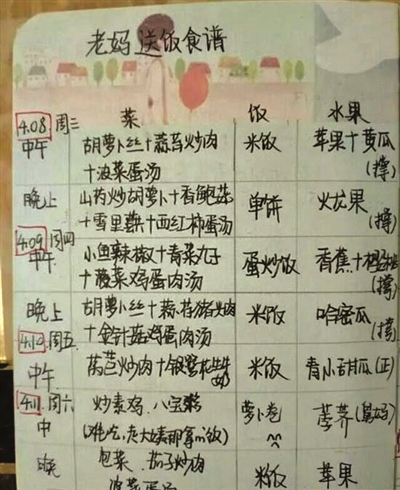 老妈送饭食谱
菜 饭 水果
4.08 周三
中午 胡萝卜丝+蒜苔炒肉 米饭 苹果+黄瓜
+菠菜蛋汤 (撑)
晚上 山药炒胡萝卜+香鲍菇 单饼 火龙果
+雪里蕻+西红柿蛋汤 (撑)
4.09 周四
中午 小鱼辣椒+青菜丸子 蛋炒饭 香蕉+
+菠菜鸡蛋肉汤 (撑)
晚上 胡萝卜丝+蒜苔猪肉 米饭 哈密瓜
+金针菇鸡蛋肉汤 (撑)
4.10 周五
中午 莴苣炒肉+银鹭花生牛奶 米饭 青小甜瓜(正)
4.11 周六
中 炒素鸡、八宝粥 萝卜卷 荸荠
(难吃,老大姨那拿の饭)
晚 包菜、茄子炒肉 米饭 苹果
菠菜蛋汤